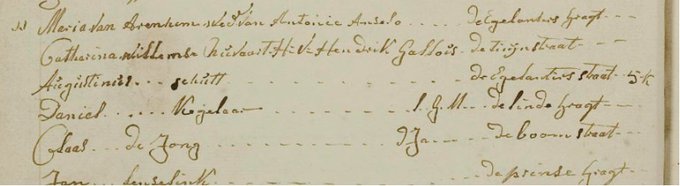 Maria van Arenhem wed: van Antonie Anselo de Egelantiers gragt
Catharina Willemse H:V: Hendrik Gallois de Trijnstraat
Augustinus schutt de Egelantiers straat 5 K
Daniel Kegelaar l. G M de linde gragt
Claas de Jong d Ja de boomstraat
Jan de prinse gragt